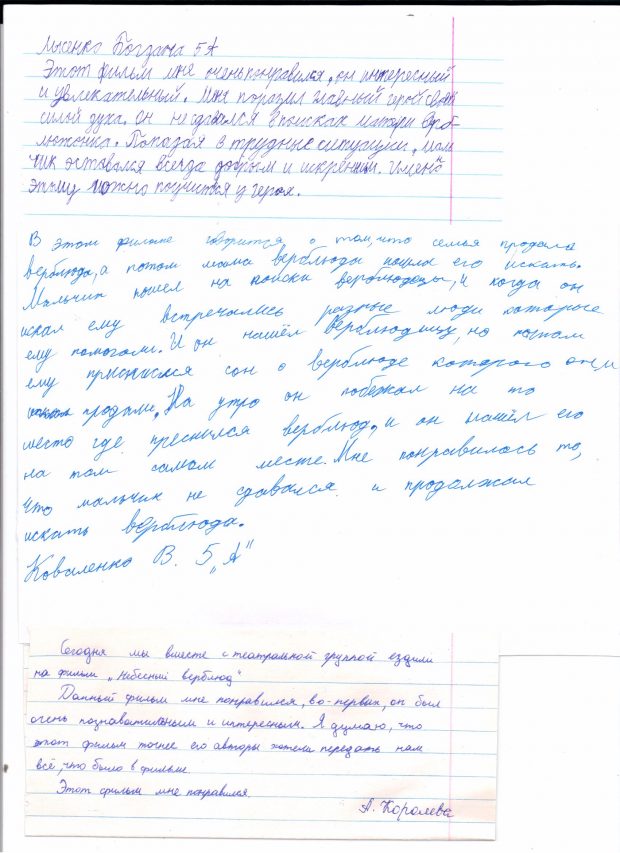 Лысенко Богдана 5А
Этот фильм мне очень понравился, он интересный
и увлекательный. Меня поразил главный герой своей
силой духа. Он не сдавался в поисках матери верб-
люжонка. Попадая в трудные ситуации, маль
чик оставался всегда добрым и искренним. Имено
этому можно поучится у героя.
В этом фильме говорится о том, что семья продала
верблюда, а потом мама верблюда пошла его искать.
Мальчик пошел на поиски верблюдецы, и когда он
искал ему встречались разные люди которые
ему помогали. И он нашёл верблюдицу, но потом
ему приснился сон о верблюде которого они
продали. На утро он побежал на то
место где преснился верблюд, и он нашёл его
на том самом месте. Мне понравилось то,
что мальчик не сдавался и продолжал
искать верблюда.
Коваленко В. 5 „А"
Сегодня мы вместе с театральной группой ездили
на фильм „Небесный верблюд"
Данный фильм мне понравился, во-первых, он был
очень познавательным и интересным. Я думаю, что
этот фильм точнее его авторы хотели передать нам
всё, что было в фильме.
Этот фильм мне понравился
А. Королева